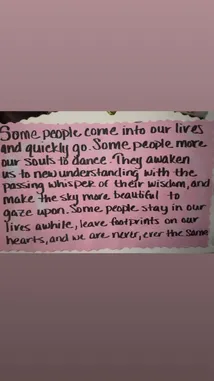 Some people come into our lives
and quickly go. Some people move
our souls to dance. They awaken
us to new understanding with the
passing whisper of their wisdom, and
make the sky more beautiful to
gaze upon. Some people stay in our
lives awhile, leave footprints on our
hearts, and we are never, ever the same